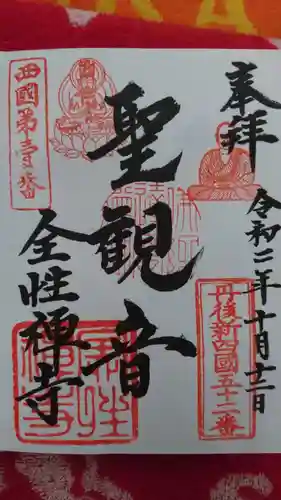 奉拝
令和二年十月十二日
丹後新四國五十二番
聖観音
西國第壹番
全性禅寺